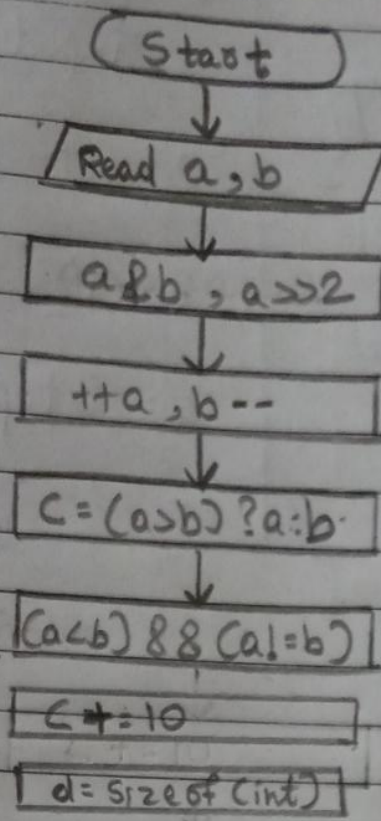 Start
Read a, b
a&b, a>>2
++a, b--
c = (a>b) ? a : b
(a<b) && (a!=b)
c += 10
d = sizeof (int)